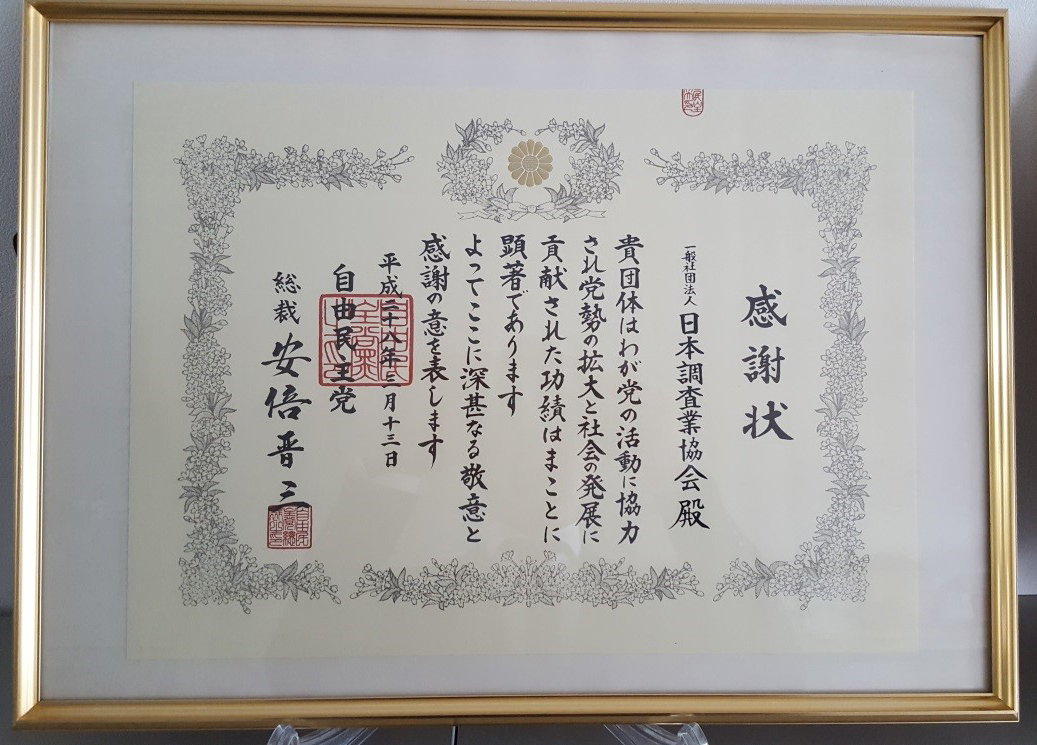 感謝状
一般社団法人 日本調査業協会殿
貴団体はわが党の活動に協力
され党勢の拡大と社会の発展に
貢献された功績はまことに
顕著であります
よってここに深甚なる敬意と
感謝の意を表します
平成二十八年三月十三日
自由民主党
総裁 安倍晋三